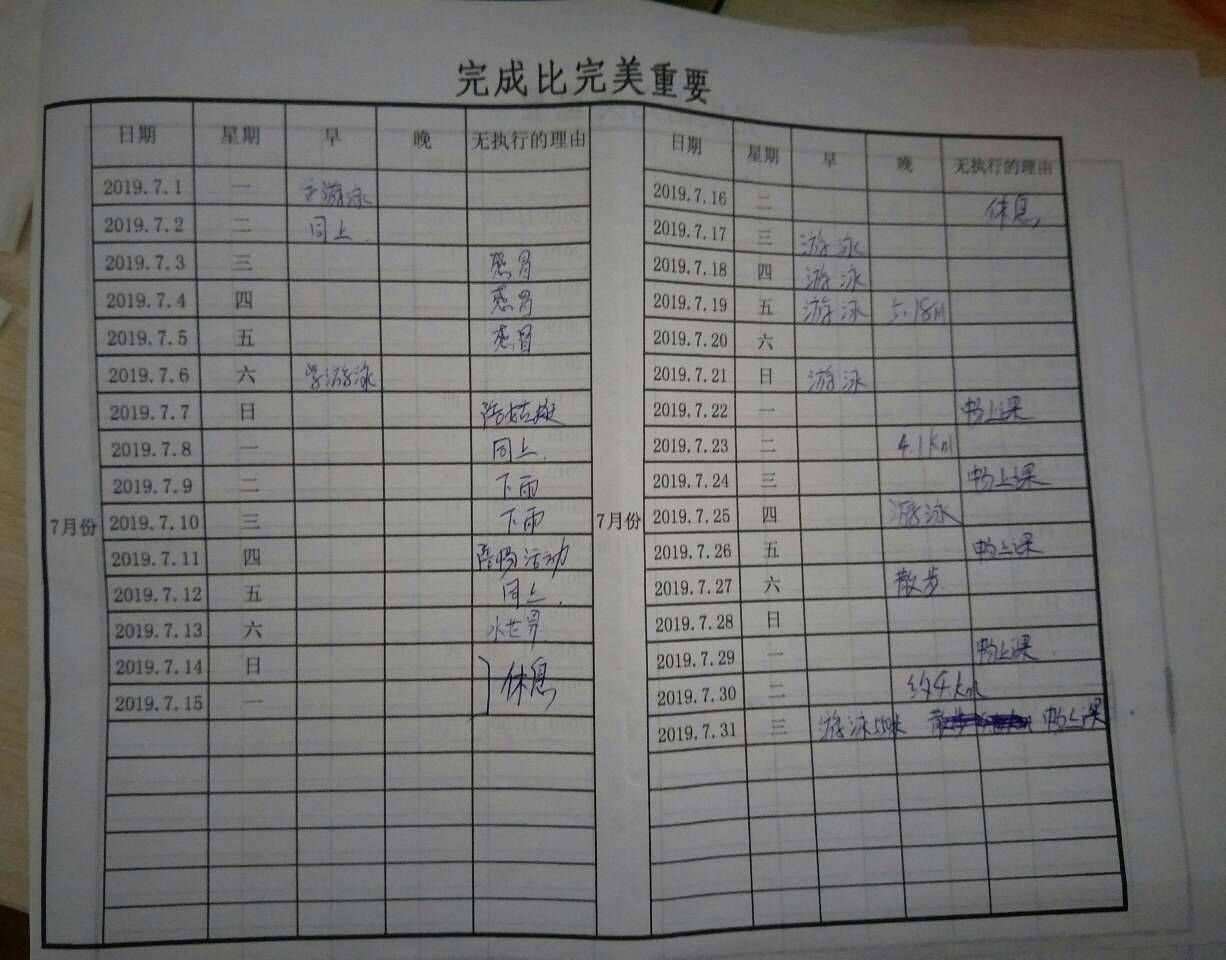 完成比完美重要
日期 星期 早 晚 无执行的理由
7月份
2019.7.1 一 游泳
2019.7.2 二 同上.
2019.7.3 三 感冒
2019.7.4 四 感冒
2019.7.5 五 感冒
2019.7.6 六 学游泳
2019.7.7 日
2019.7.8 一 同上.
2019.7.9 二 下雨
2019.7.10 三 下雨
2019.7.11 四 陪畅活动
2019.7.12 五 同上.
2019.7.13 六 水世界
2019.7.14 日 } 休息
2019.7.15 一
日期 星期 早 晚 无执行的理由
7月份
2019.7.16 二 休息
2019.7.17 三 游泳
2019.7.18 四 游泳
2019.7.19 五 游泳 5.18
2019.7.20 六
2019.7.21 日 游泳
2019.7.22 一 畅上课
2019.7.23 二 4.1Km
2019.7.24 三 畅上课
2019.7.25 四 游泳
2019.7.26 五 畅上课
2019.7.27 六 散步
2019.7.28 日
2019.7.29 一 畅上课.
2019.7.30 二 约4Km
2019.7.31 三 游泳 畅上课